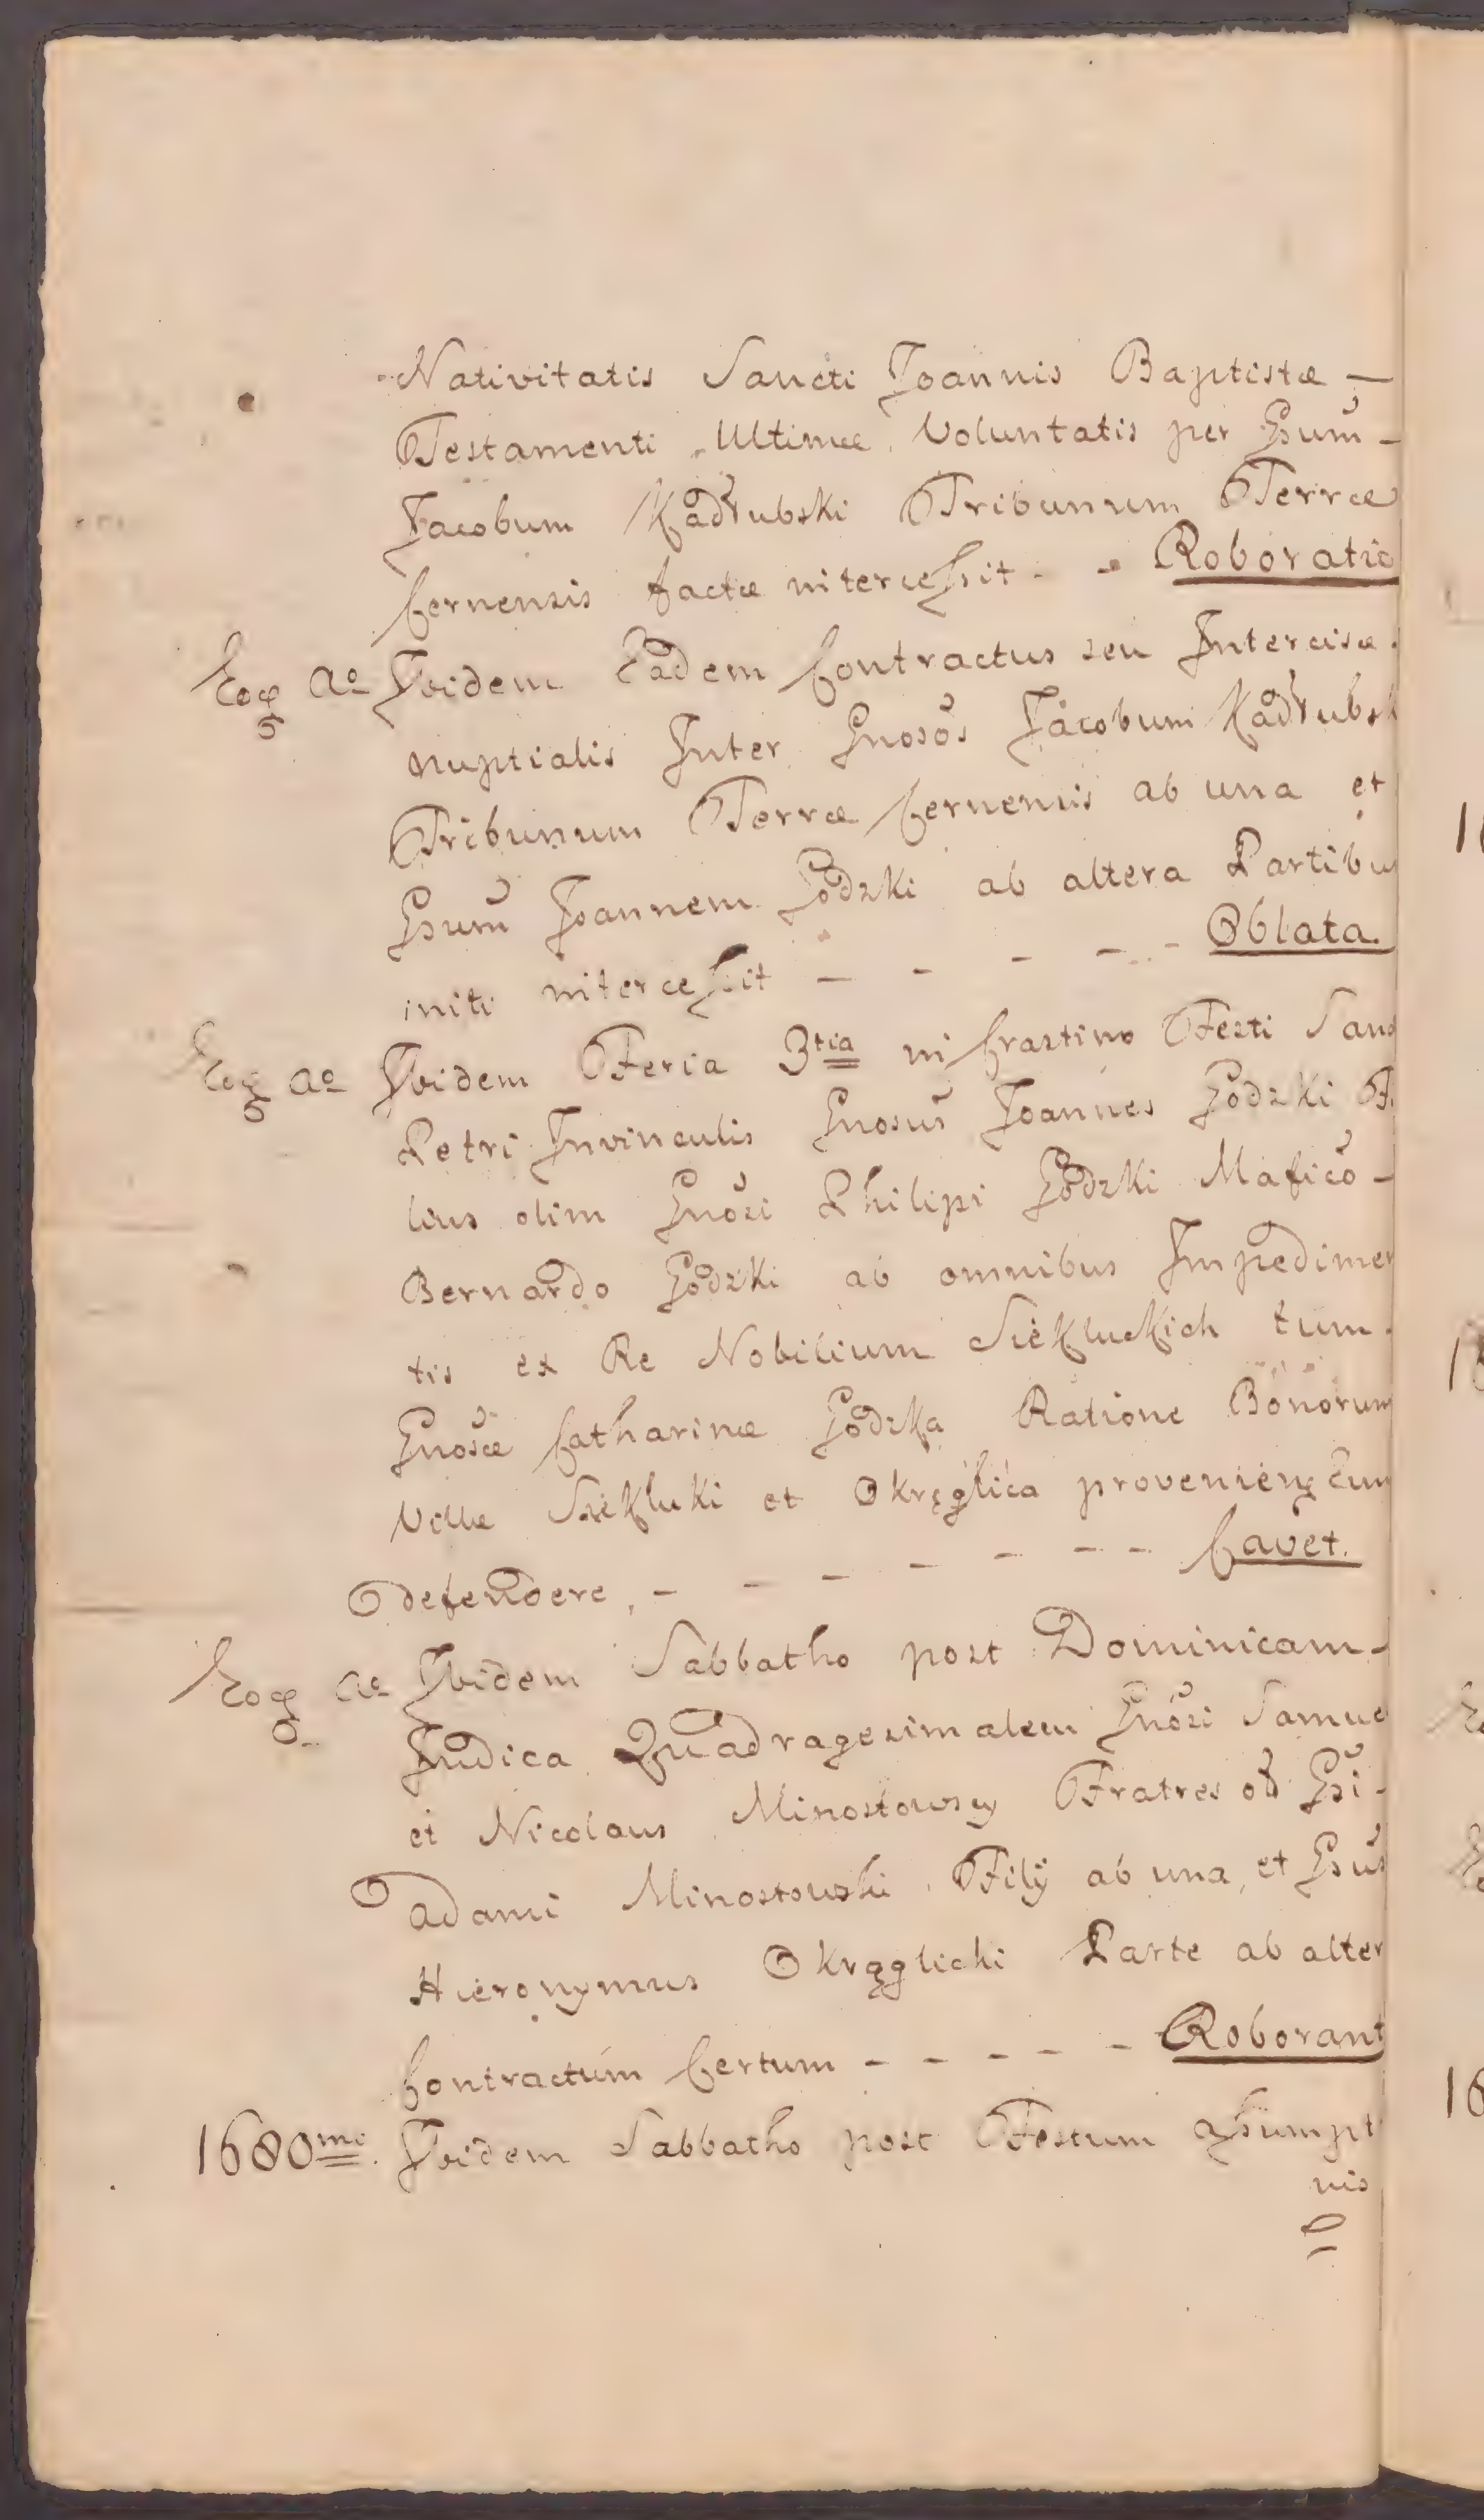 Nativitatis Sancti Joannis Baptistæ —
Testamenti Ultimæ Voluntatis per Gsum̃ -
Jacobum Kadłubski Tribunum Terræ
Cernensis factæ intercessit - - Roboratio
Eoq Ao Ibidem Eadem Contractus seu Intercisæ
nuptialis Inter Gnosos Jacobum Kadłubsk
Tribunum Terræ Cernensis ab una et
Gsum̃ Joannem Godzki ab altera Partibus
initi intercessit - - - - - Oblata.
Eoq Ao Ibidem Feria 3tia in Crastino Festi Sanc
Petri Invinculis Gnosus Joannes Godzki F.
lius olim Gnosi Philipi Godzki Mafico -
Bernardo Godzki ab omnibus Impedimen
tis ex Re Nobilium Siekluckich tum
Gnosæ Catharinæ Godzka Ratione Bonorum
Villæ Siekluki et Okręglica provenienq Eum
defendere, - - - - - - - Cavet.
Eoq Ao Ibidem Sabbatho post Dominicam -
Judica Quadragesimalem Gnosi Samue
et Nicolaus Minostowsy Fratres od Gsi -
Adami Minostowski Filÿ ab una, et Gsus
Hieronymus Okręglicki Parte ab alter
Contractum Certum - - - - - Roborant
1680mo. Ibidem Sabbatho post Festum Assumpt
nis